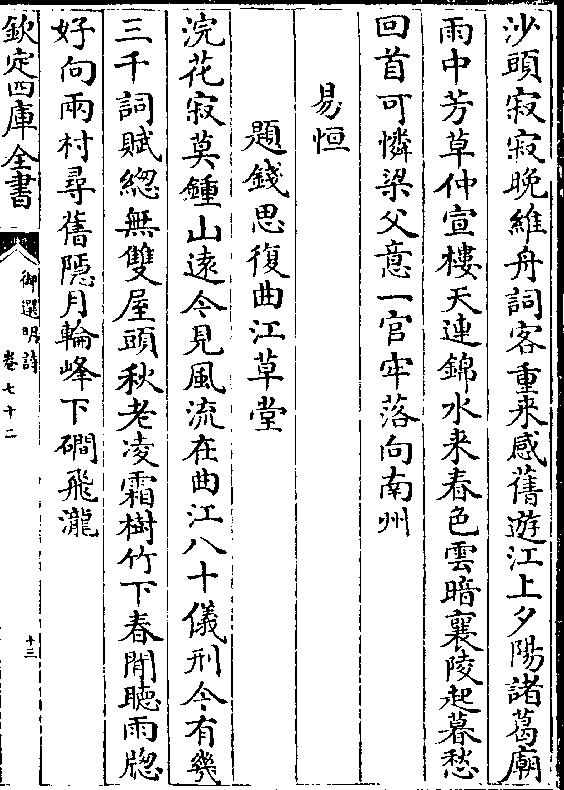 沙頭寂寂晚維舟詞客重来感舊遊江上夕陽諸葛廟
雨中芳草仲宣樓天連錦水来春色雲暗襄陵起暮愁
回首可憐梁父意一官牢落向南州
易恒
題錢思復曲江草堂
浣花寂莫鍾山遠今見風流在曲江八十儀刑今有幾
三千詞賦緫無雙屋頭秋老凌霜樹竹下春閒聽雨牕
好向兩村尋舊隠月輪峰下磵飛瀧
欽定四庫全書
御選明詩
卷七十二
十三